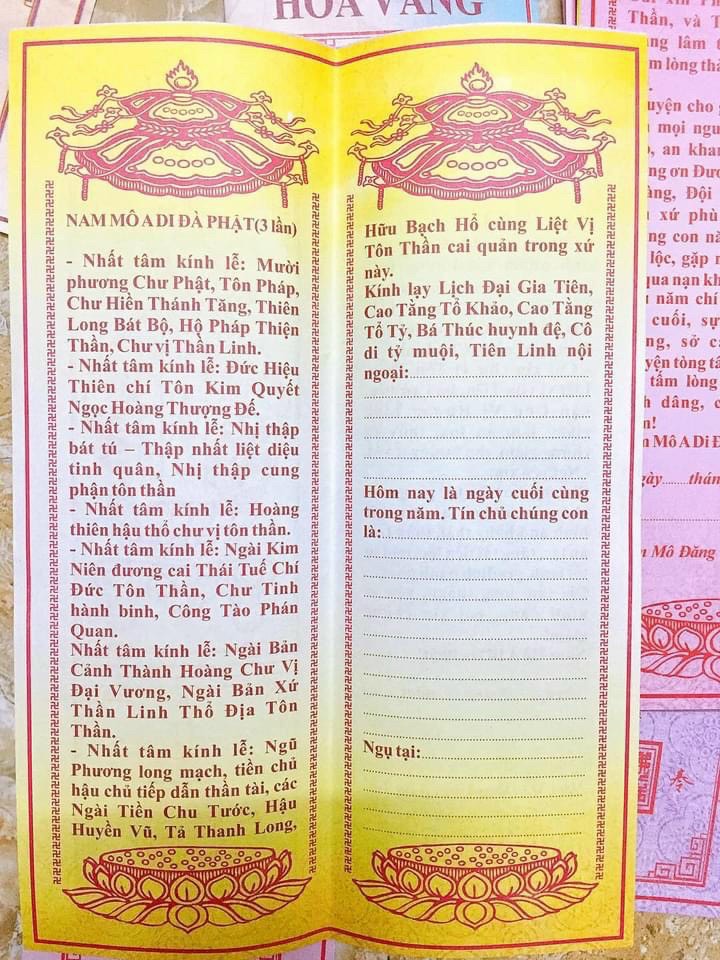 HÓA VÀNG
NAM MÔ A DI ĐÀ PHẬT(3 lần)
- Nhất tâm kính lễ: Mười
phương Chư Phật, Tôn Pháp,
Chư Hiền Thánh Tăng, Thiên
Long Bát Bộ, Hộ Pháp Thiện
Thần, Chư vị Thần Linh.
- Nhất tâm kính lễ: Đức Hiệu
Thiên chí Tôn Kim Quyết
Ngọc Hoàng Thượng Đế.
- Nhất tâm kính lễ: Nhị thập
bát tú – Thập nhất liệt diệu
tinh quân, Nhị thập cung
phận tôn thần
- Nhất tâm kính lễ: Hoàng
thiên hậu thổ chư vị tôn thần.
- Nhất tâm kính lễ: Ngài Kim
Niên đương cai Thái Tuế Chí
Đức Tôn Thần, Chư Tinh
hành binh, Công Tào Phán
Quan.
Nhất tâm kính lễ: Ngài Bản
Cảnh Thành Hoàng Chư Vị
Đại Vương, Ngài Bản Xứ
Thần Linh Thổ Địa Tôn
Thần.
- Nhất tâm kính lễ: Ngũ
Phương long mạch, tiền chủ
hậu chủ tiếp dẫn thần tài, các
Ngài Tiền Chu Tước, Hậu
Huyền Vũ, Tả Thanh Long,
Hữu Bạch Hổ cùng Liệt Vị
Tôn Thần cai quản trong xứ
này.
Kính lạy Lịch Đại Gia Tiên,
Cao Tằng Tổ Khảo, Cao Tằng
Tổ Tỷ, Bá Thúc huynh đệ, Cô
di tỷ muội, Tiên Linh nội
ngoại:
Hôm nay là ngày cuối cùng
trong năm. Tín chủ chúng con
là:
Ngụ tại:
Thần, và T
lâm t
m lòng thà
cho
mọi ngư
an khan
ơn Đươ
Đội
xứ phù
con nă
lộc, gặp n
qua nạn kh
năm chí
cuối, sự
sở cầ
tòng tâ
tấm lòng
dâng, c
Mô A Di Đ
thán
Mô Đăng